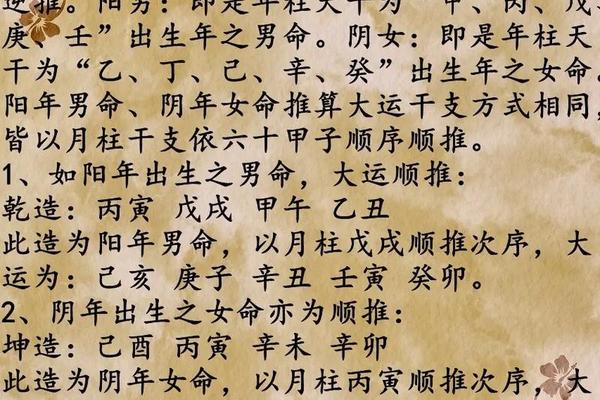 逆推。阳男：即是年柱天干为“甲、丙、戊
庚、壬”出生年之男命。阴女：即是年柱天
干为“乙、丁、己、辛、癸”出生年之女命。
阳年男命、阴年女命推算大运干支方式相同，
皆以月柱干支依六十甲子顺序顺推。
1、如阳年出生之男命，大运顺推：
乾造：丙寅 戊戌 甲午 乙丑
此造为阳年男命，以月柱戊戌顺推次序，大
运为：己亥 庚子 辛丑 壬寅 癸卯。
2、阴年出生之女命亦为顺推：
坤造：己酉 丙寅 辛未 辛卯
此造为阴年女命，以月柱丙寅顺推次序，大